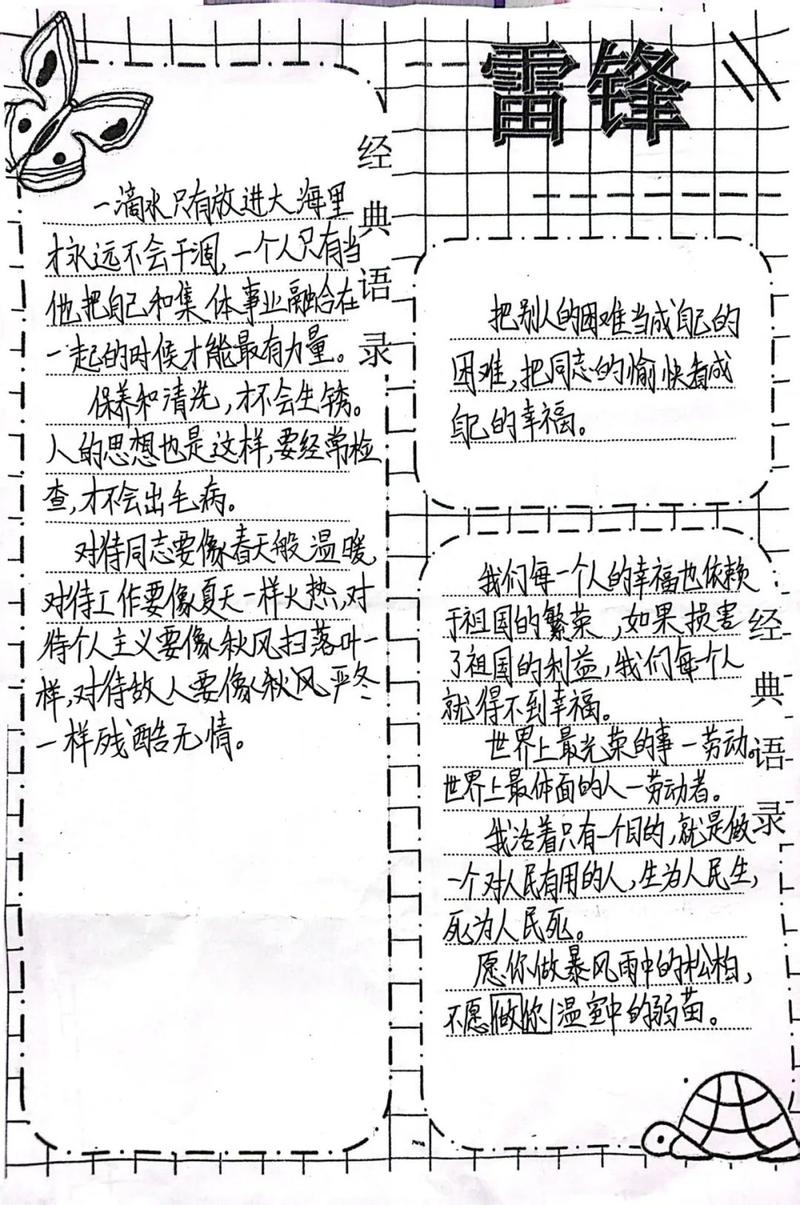 雷锋
经典语录
一滴水只有放进大海里
才永远不会干涸,一个人只有当
他把自己和集体事业融合在
一起的时候才能最有力量。
保养和清洗,才不会生锈。
人的思想也是这样,要经常检
查,才不会出毛病。
对待同志要像春天般温暖,
对待工作要像夏天一样火热,对
待个人主义要像秋风扫落叶一
样,对待敌人要像秋风严冬
一样残酷无情。
把别人的困难当成自己的
困难,把同志的愉快看成
自己的幸福。
经典语录
我们每一个人的幸福也依赖
于祖国的繁荣,如果损害
了祖国的利益,我们每个人
就得不到幸福。
世界上最光荣的事一劳动。
世界上最体面的人一劳动者。
我活着只有一个目的,就是做
一个对人民有用的人,生为人民生,
死为人民死。
愿你做暴风雨中的松柏,
不愿做你温室中的弱苗。